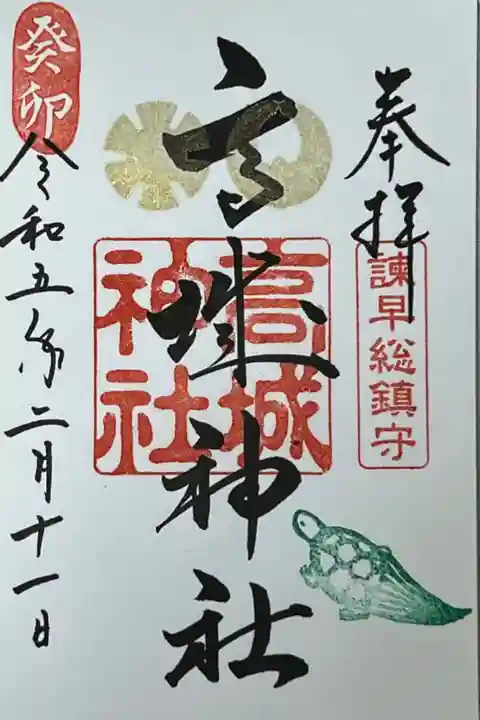 奉拝
諫早総鎮守
高城神社
高城
神社
癸卯
令和五年二月十一日